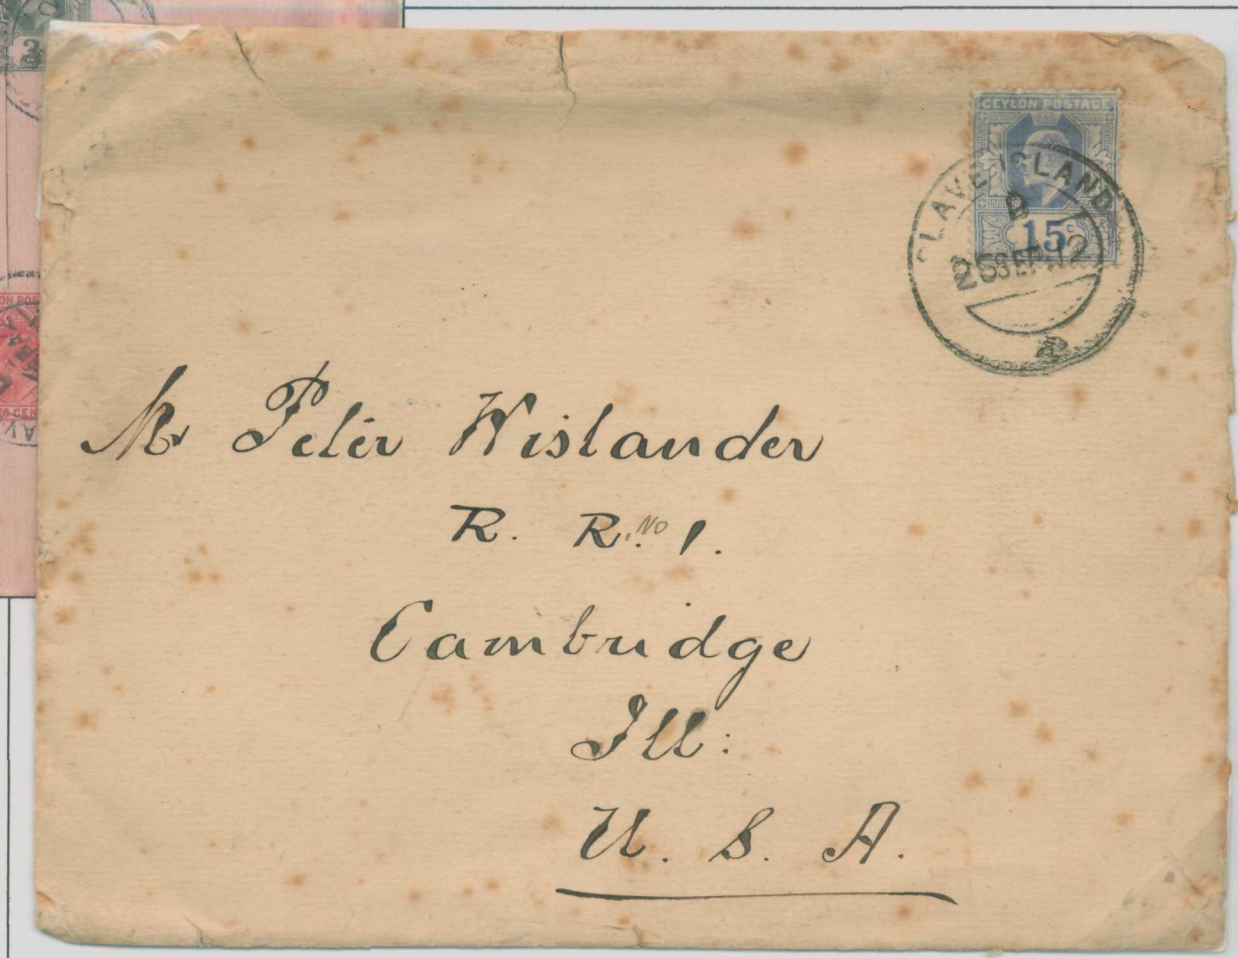 CEYLON POSTAGE
15c
SLAVE ISLAND
B
26 SEP 12
Mr Peter Wislander
R. R. No 1.
Cambridge
Ill:
U. S. A.